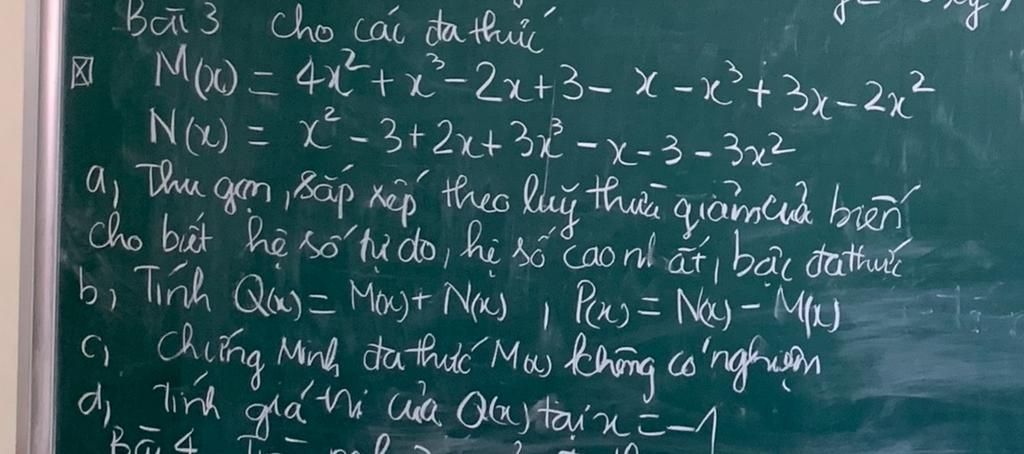 Bài 3 Cho các đa thức
M(x) = 4x² + x³ - 2x + 3 - x - x³ + 3x - 2x²
N(x) = x² - 3 + 2x + 3x³ - x - 3 - 3x²
a, Thu gọn, sắp xếp theo luỹ thừa giảm của biến
cho biết hệ số tự do, hệ số cao nhất, bậc đa thức
b, Tính Q(x) = M(x) + N(x), P(x) = N(x) - M(x)
c, Chứng Minh đa thức M(x) không có nghiệm
d, Tính giá trị của Q(x) tại x = -1
Bài 4